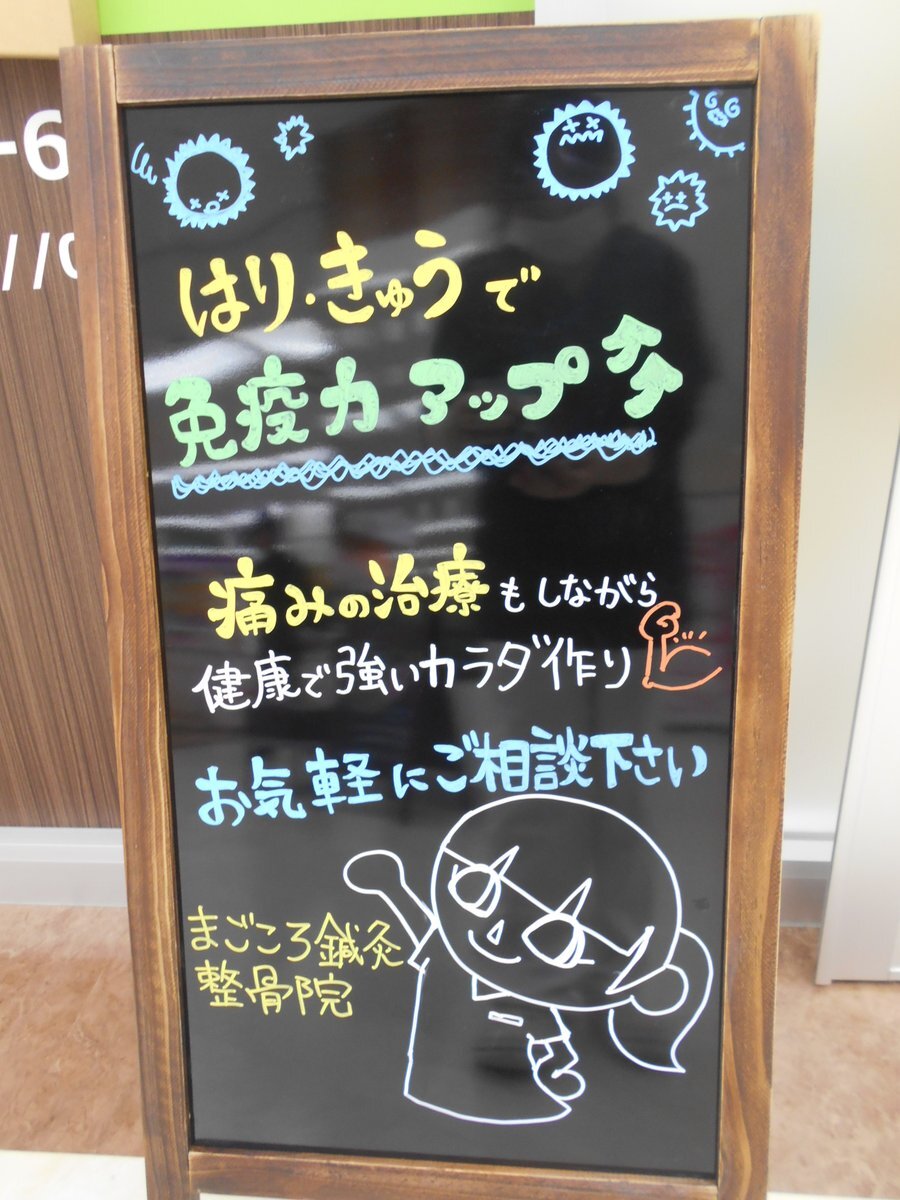 -6
//0
はり・きゅうで
免疫力アップ
痛みの治療もしながら
健康で強いカラダ作り
お気軽にご相談下さい
まごころ鍼灸
整骨院